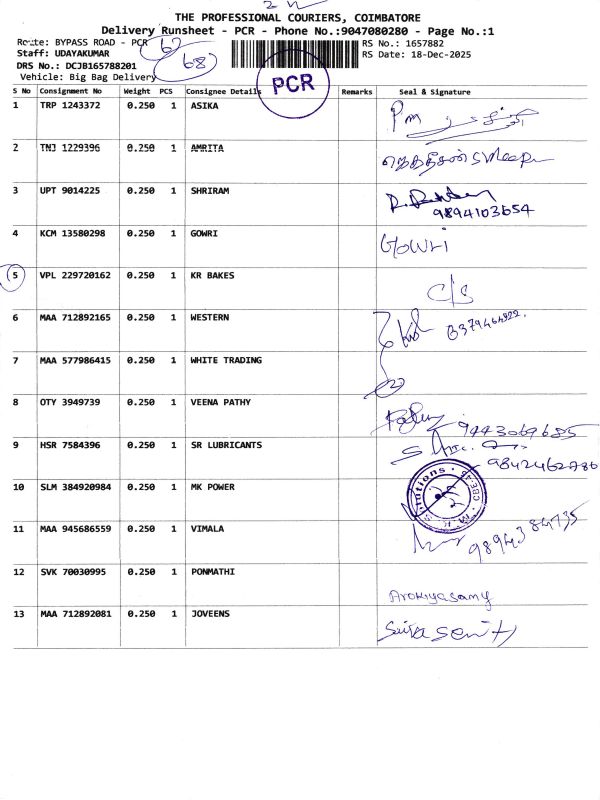 THE PROFESSIONAL COURIERS, COIMBATORE
Delivery Runsheet - PCR - Phone No.:9047080280 - Page No.:1
Route: BYPASS ROAD - PCR
RS No.: 1657882
Staff: UDAYAKUMAR
RS Date: 18-Dec-2025
DRS No.: DCJB165788201
68
Vehicle: Big Bag Delivery
PCR
S No Consignment No Weight PCS Consignee Details Remarks Seal & Signature
1 TRP 1243372 0.250 1 ASIKA
Pm
2 TNJ 1229396 0.250 1 AMRITA
3 UPT 9014225 0.250 1 SHRIRAM
9894103654
4 KCM 13580298 0.250 1 GOWRI
GOWRI
5 VPL 229720162 0.250 1 KR BAKES
C/S
6 MAA 712892165 0.250 1 WESTERN
7 MAA 577986415 0.250 1 WHITE TRADING
8 OTY 3949739 0.250 1 VEENA PATHY
9443069685
9 HSR 7584396 0.250 1 SR LUBRICANTS
9842462786
10 SLM 384920984 0.250 1 MK POWER
11 MAA 945686559 0.250 1 VIMALA
9894384735
12 SVK 70030995 0.250 1 PONMATHI
Arokiyasamy
13 MAA 712892081 0.250 1 JOVEENS